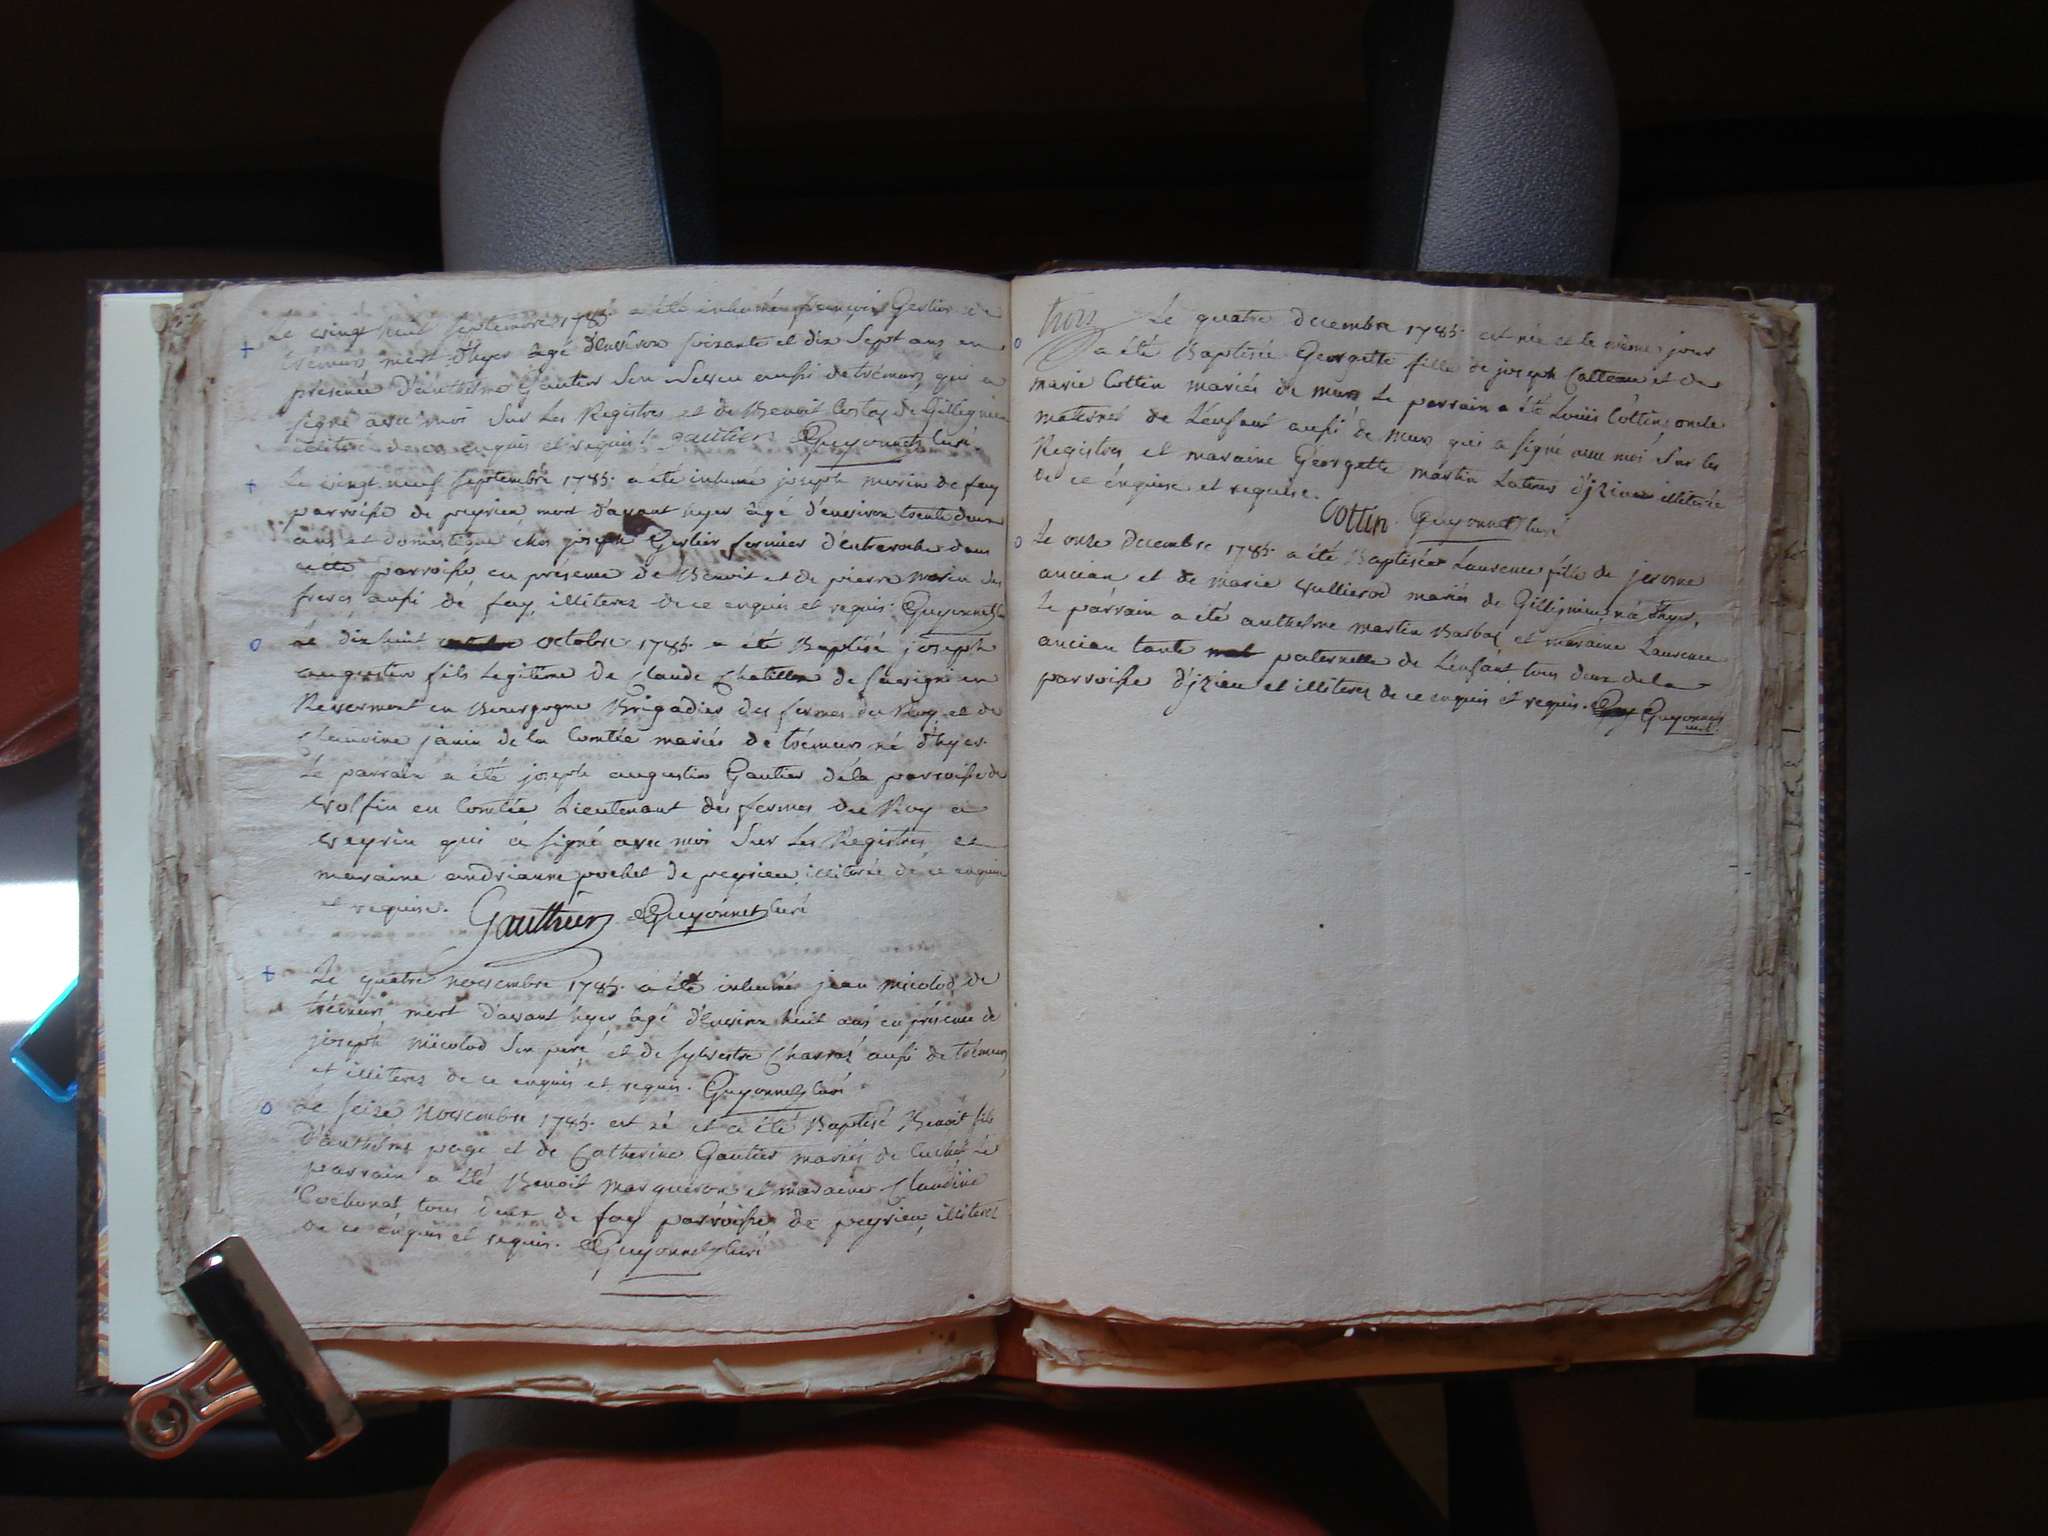 Le vingt huit septembre 1785. a été inhumé françois Gestier de
trémurs mort d'hyer âgé d'environ soixante et dix sept ans en
présence d'anthelme Gautier son neveu aussi de trémurs qui a
signé avec moi sur les Registres et de Benoit Costaz de Gillignieu
illiteré de ce enquis et requis. gautier Guyonnet curé.
Le vingt neuf septembre 1785. a été inhumé joseph morin de fay
parroisse de peyrieu mort d'avant hyer âgé d'environ trente deux
ans et domestique chez joseph Gestier fermier d'entreroche dans
cette parroisse en présence de Benoit et de pierre morin ses
freres aussi de fay, illiterez de ce enquis et requis. Guyonnet
Le dix huit octobre 1785. a été Baptisé joseph
augustin fils Legitime de Claude Chatillon de
Revermont en Bourgogne Brigadier des fermes du Roy et de
janin de la Comtée mariés de trémurs né d'hyer.
Le parrain a été joseph augustin Gautier de la parroisse de
volfin en Comtée Lieutenant des fermes du Roy a
veyrin qui a signé avec moi sur les Registres et
maraine andrianne pochet de peyrieu illiterée de ce enquise
et requise. Gauthier Guyonnet curé
Le quatre novembre 1785. a été inhumé jean micolod de
trémurs mort d'avant hyer âgé d'environ huit ans en présence de
joseph micolod son pere et de sylvestre Charras aussi de trémurs
et illiterez de ce enquis et requis. Guyonnet curé
Le seize Novembre 1785. est né et a été Baptisé Benoit fils
d'anthelme page et de Catherine Gautier mariés de Cuchet Le
parrain a été Benoit marqueron et maraine Claudine
Cochonat tous deux de fay parroisse de peyrieu, illiterez
de ce enquis et requis. Guyonnet curé
trois Le quatre decembre 1785. est née et le même jour
a été Baptisée Georgette fille de joseph Catteau et de
marie Cottin mariés de murs Le parrain a été Louis Cottin oncle
maternel de L'enfant aussi de murs qui a signé avec moi sur les
Registres et maraine Georgette martin d'izieu illiterée
de ce enquise et requise. Cottin Guyonnet curé
Le onze decembre 1785. a été Baptisée Laurence fille de jerome
ancian et de marie vullierod mariés de Gillignieu, née d'hyer,
Le parrain a été anthelme martin Barbaz et maraine Laurence
ancian tante paternelle de L'enfant tous deux de la
parroisse d'izieu et illiterez de ce enquis et requis. Guyonnet
curé.